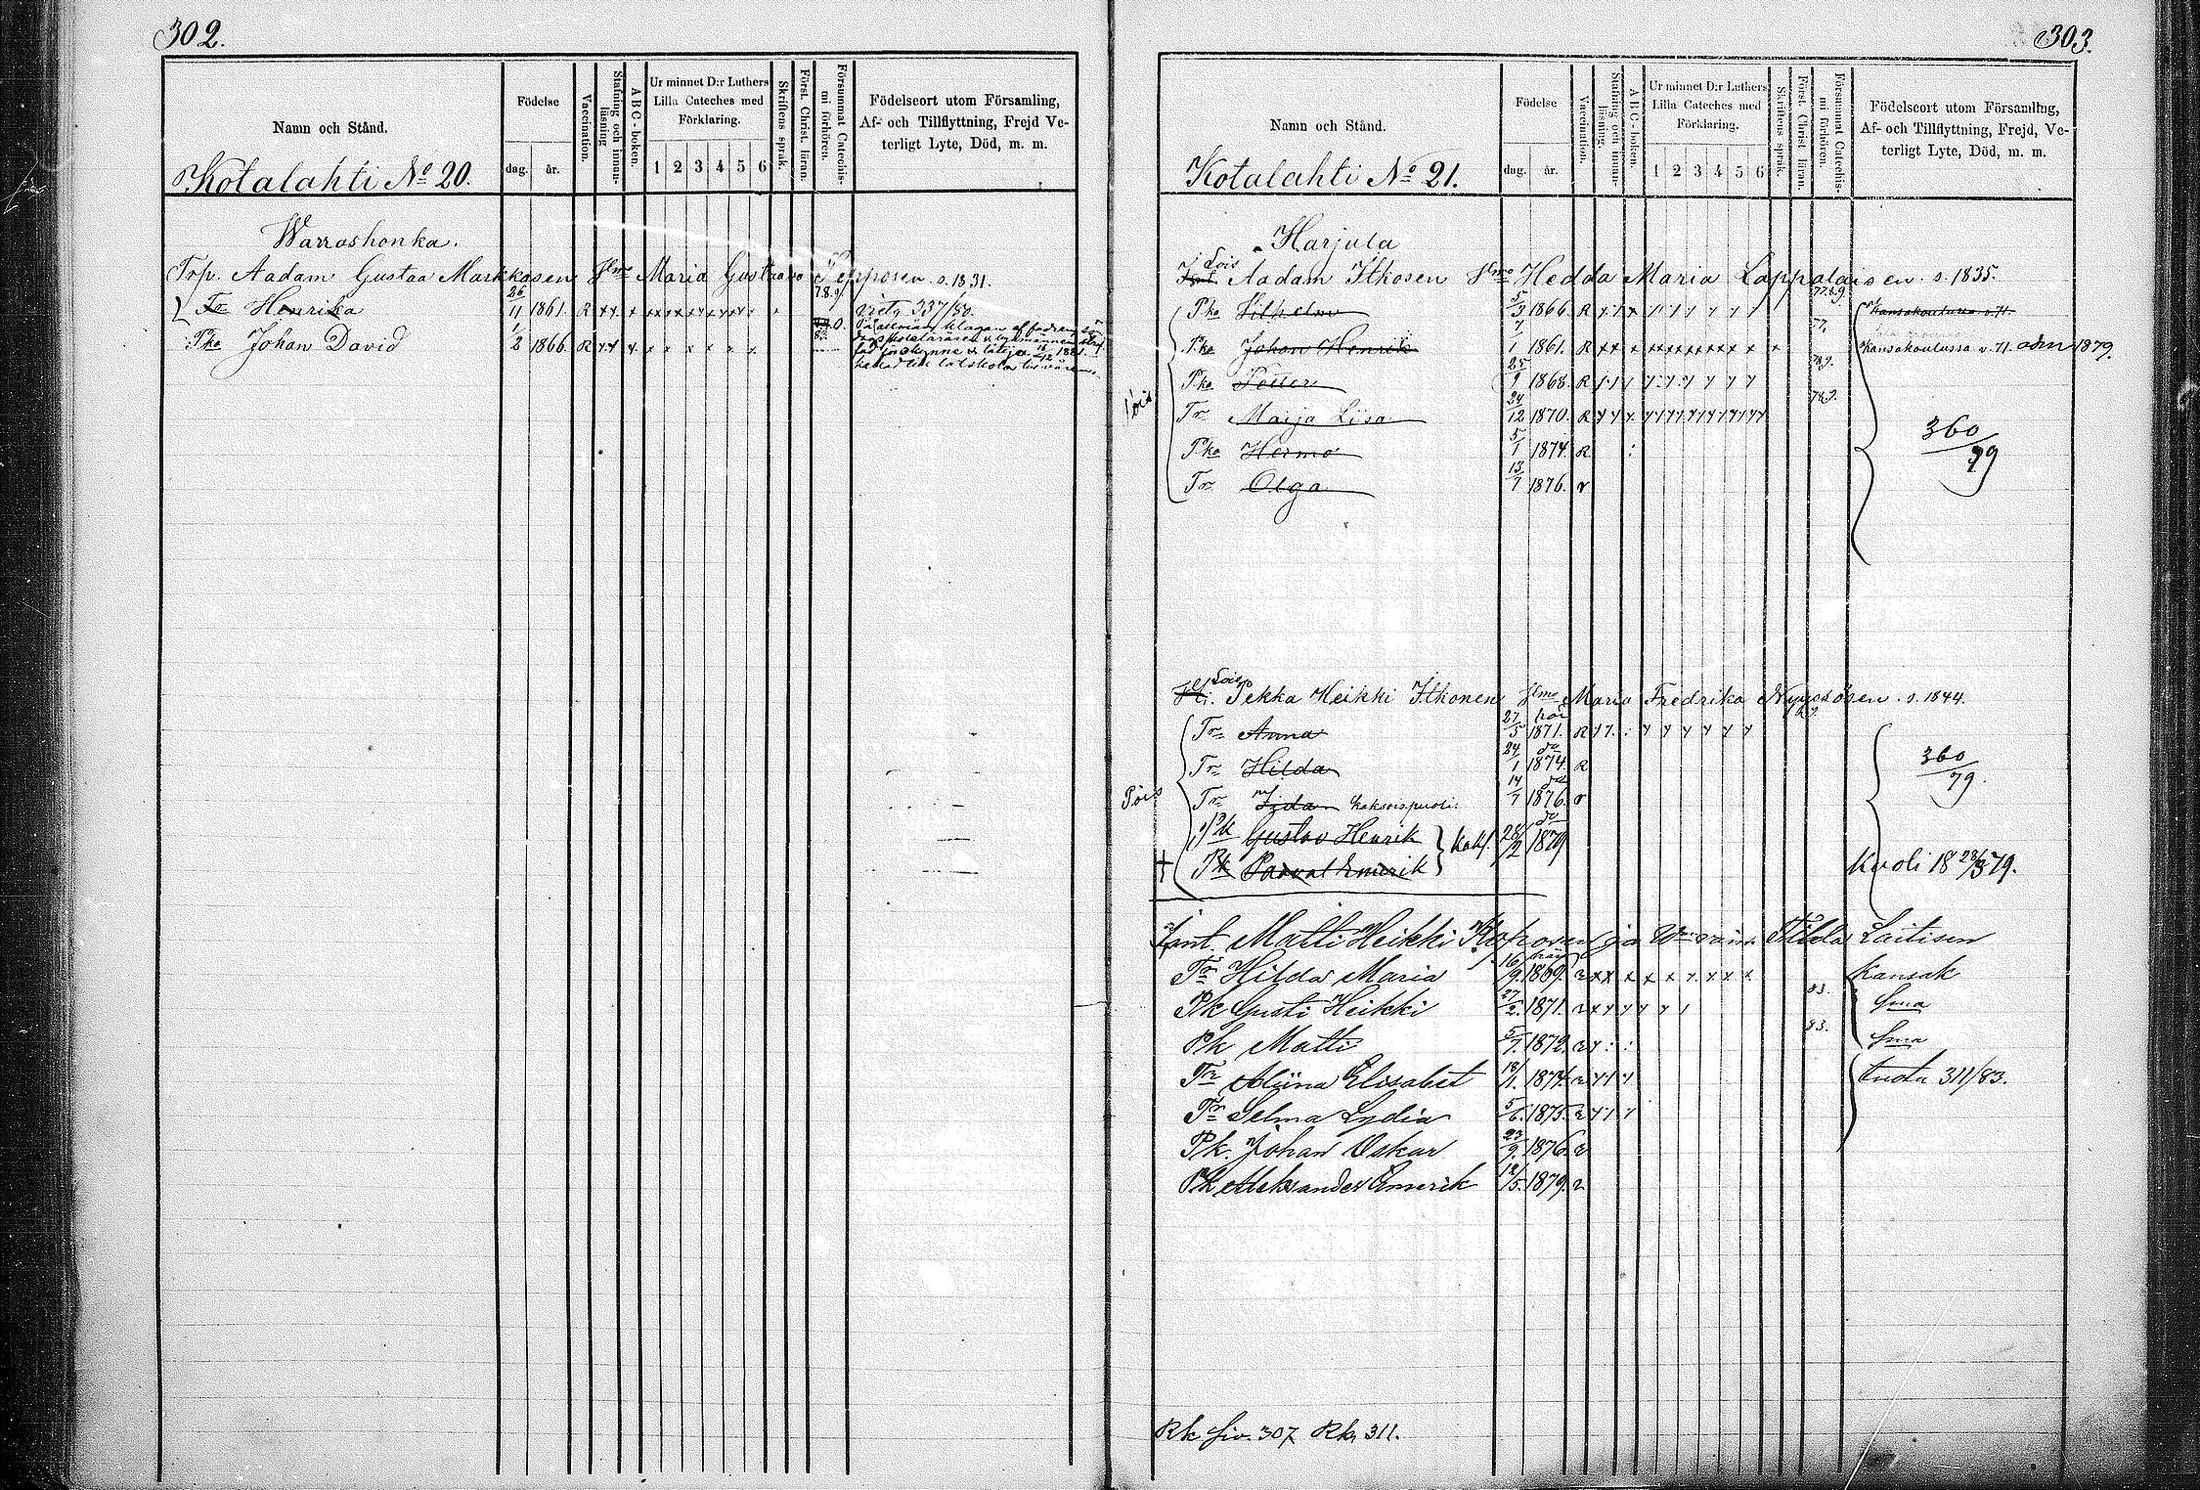 302.
Namn och Stånd.
Födelse
dag.
år.
Vaccination.
Stafning och innan-
läsning
A B C - boken.
Ur minnet D:r Luthers
Lilla Cateches med
Förklaring.
1 2 3 4 5 6
Skriftens språk.
Först. Christ. läran.
Försummat Catechis-
mi förhören.
Födelseort utom Församling,
Af- och Tillflyttning, Frejd Ve-
terligt Lyte, Död, m. m.
Kotalahti No 20.
Warrashonka.
Torp. Aadam Gustaa Markkasen Hmo Maria Gustaava Repposen s. 1831.
Tr Henrika 26/11 1861. R
Pka Johan David 1/2 1866. R
303.
Namn och Stånd.
Födelse
dag.
år.
Vaccination.
Stafning och innan-
läsning.
A B C - boken.
Ur minnet D:r Luthers
Lilla Cateches med
Förklaring.
1 2 3 4 5 6
Skriftens språk.
Först. Christ. läran.
Försummat Catechis-
mi förhören.
Födelseort utom Församling,
Af- och Tillflyttning, Frejd, Ve-
terligt Lyte, Död, m. m.
Kotalahti No 21.
Harjula
Lois Aadam Itkosen Hmo Hedda Maria Lappalaisen s. 1835.
Pka Vilhelm 5/3 1866. R Kansakoulussa v. 71.
Pka Johan Henrik 1861. R 77. Kansakoulussa v. 71. adm 1879.
Pka Petter 25/9 1868. R 78.9.
Pois
Tr Marja Liisa 24/12 1870. R 78.9.
360/79
Pka Hermo 5/1 1874. R
Tr Olga 13/7 1876. r
Lois
Pekka Heikki Itkonen Hmo Maria Fredrika s. 1844.
Tr Anna 27/5 1871. R
Tr Hilda 24/1 1874. R
360/79.
Pois
Tr Iida kaksoispuoli 14/7 1876. r
Pk Gustav Henrik } kaks. 28/2 1879
† Pk Paavat Emerik Kuoli 18 23/3 79.
Matti Heikki Hilda Laitisen
Tr Hilda Maria 16/9. 1869. Kansak
Pk Gusti Heikki 27/2. 1871. 83. Sma
Pk Matti 5/7. 1872. 83. Sma
Tr Miina Elisabet 18/1. 1874. tuota 311/83.
Tr Selma Lydia 5/6. 1875.
Pk. Johan Oskar 23/9. 1876.
Pk Aleksander Emerik 12/5. 1879.
Rk siv. 307 Rk 311.